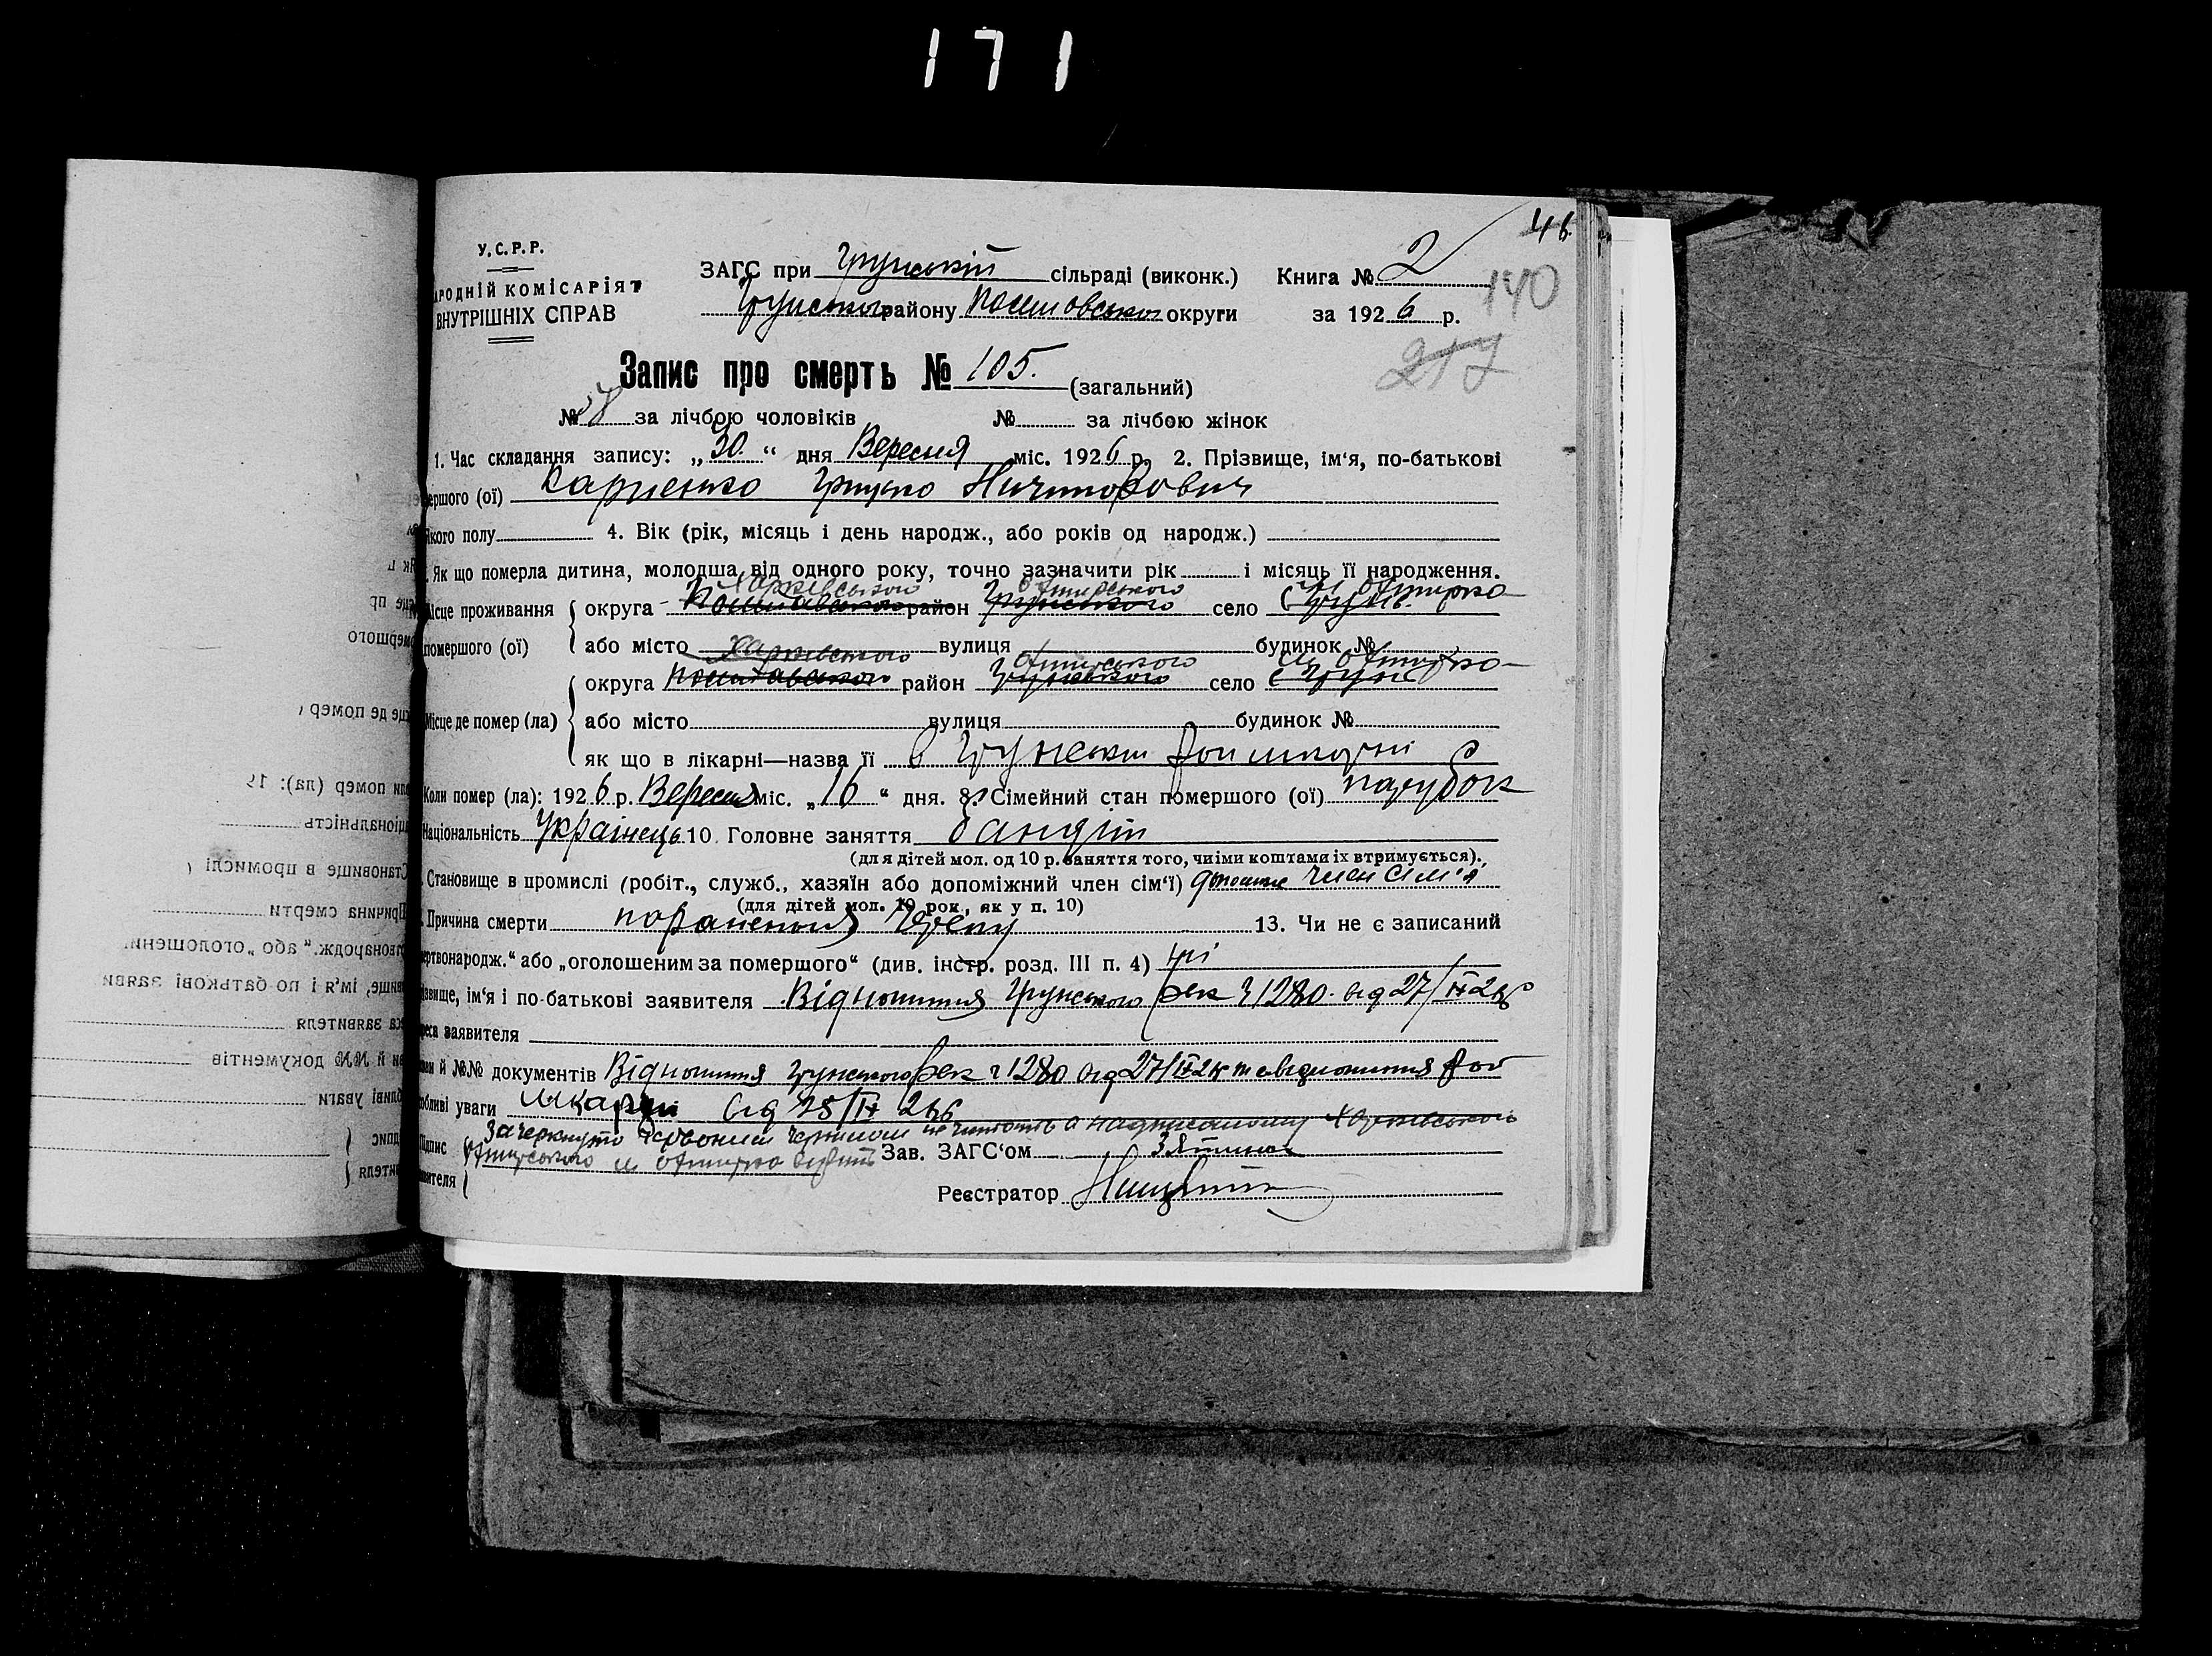 171
46
У.С.Р.Р.
РОДНІЙ КОМІСАРІЯТ
ВНУТРІШНІХ СПРАВ
ЗАГС при Грунській сільраді (виконк.) Книга № 2
140
Грунського району Полтавської округи за 1926 р.
217
Запис про смерть № 105. (загальний)
№ за лічбою чоловіків № за лічбою жінок
1. Час складання запису: „30.“ дня Вересня міс. 1926 р. 2. Прізвище, ім‘я, по-батькові
ершого (ої) Карпенко Грицько Ничипорович
якого полу 4. Вік (рік, місяць і день народж., або років од народж.)
Як що померла дитина, молодша від одного року, точно зазначити рік і місяць її народження.
Харківського Охтирського м Охтирка
Місце проживання округа Полтавського район Грунського село с Грунь.
помершого (ої) або місто вулиця будинок №
Харківського Охтирського м Охтирка
округа Полтавського район Грунського село с Грунь
Місце де помер (ла) або місто вулиця будинок №
як що в лікарні—назва її в Грунський
Коли помер (ла): 1926 р. Вересня міс. „16“ дня. 8. Сімейний стан помершого (ої) парубок
Національність Українець 10. Головне заняття бандіт
(для дітей мол. од 10 р. заняття того, чиїми коштами їх втримується).
Становище в промислі (робіт., служб., хазяїн або допоміжний член сім‘ї) член сім'ї
(для дітей мол. 10 рок., як у п. 10)
Причина смерти поранення 13. Чи не є записаний
ертвонародж.“ або „оголошеним за помершого“ (див. інстр. розд. III п. 4) ні
ізвище, ім‘я і по-батькові заявителя Відношення Грунського 1280 від 27/IX 26
реса заявителя
й №№ документів Відношення Грунського 1280 від 27/IX 26 та відношення
обливі уваги лікарні від 25/IX 26
Зачеркнуто червоним чернилом не читать а надписаному Харківського
Підпис Охтирського м Охтирка вірить Зав. ЗАГС‘ом
явителя
Реєстратор